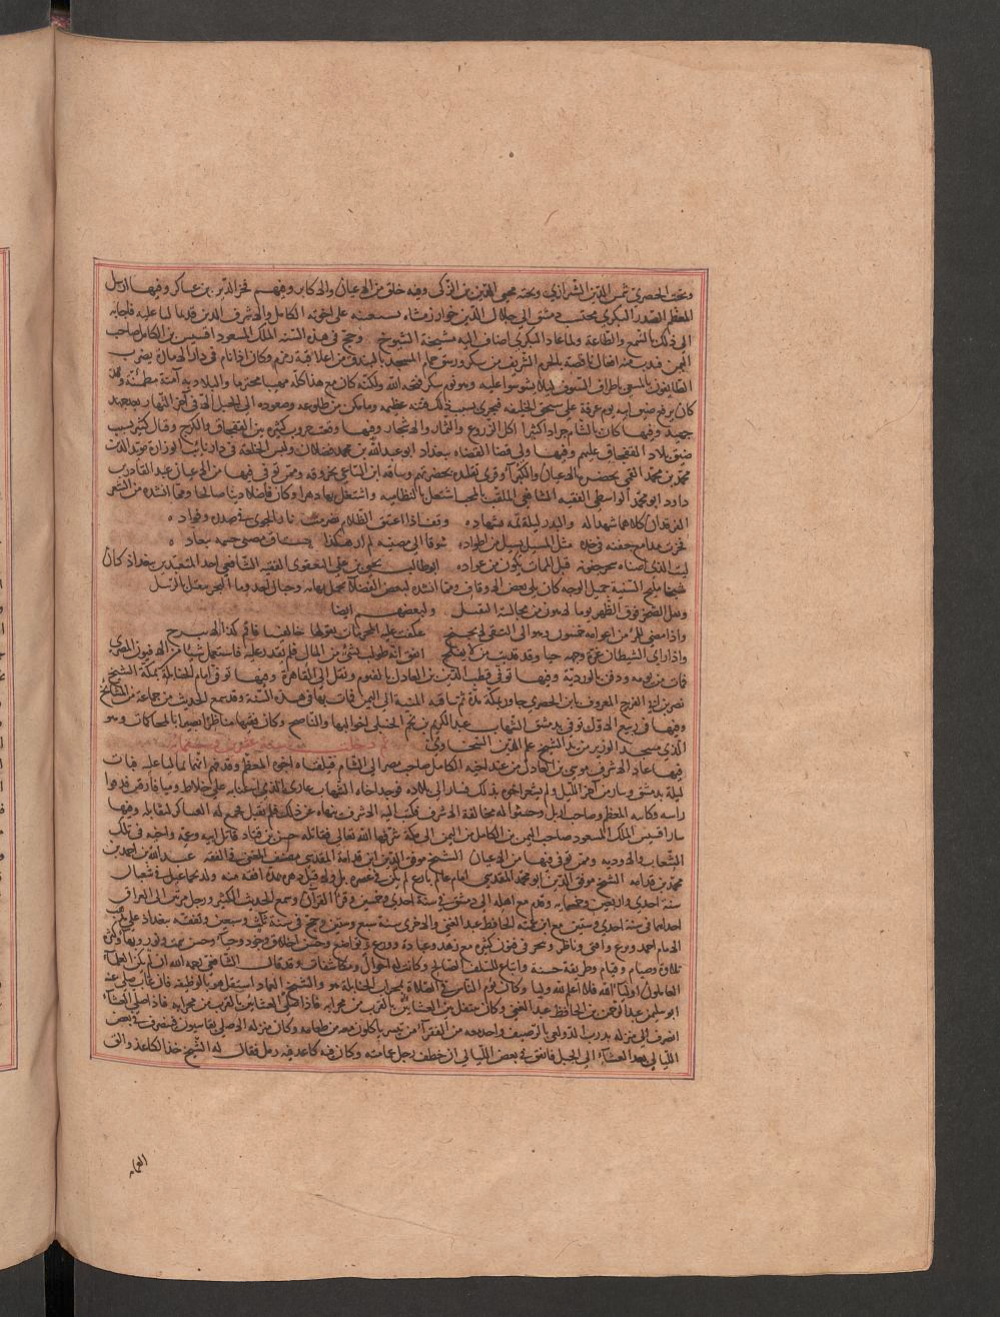 وتحت الحصري شمس الدين الشيرازي وتحته محيي الدين بن الزكي وفيه خلق من الاعيان والاكابر وفيهم فخر الدين بن عساكر وفيها ارسل
المعظم الصدر البكري محتسب دمشق الى جلال الدين خوارزم شاه على اخويه الكامل والاشرف الذين قد عليه فاجابه
الى ذلك بالسمع والطاعة ولما عاد البكري اضاف اليه مشيخة الشيوخ وحج في هذه السنة الملك المسعود اقسيس بن الكامل صاحب
اليمن فبدت منه افعال ناقصة بالحرم الشريف من سكر ورشق حمام المسجد بالبندق من اعلا قبة زمزم وكان اذا نام في دار الامارة يضرب
الطايفون بالمسعى باطراف السيوف ليلا يشوشوا عليه وهو في سكر قبحه الله ولكنه كان مع هذا كله مهيبا محترما والبلاد به آمنة مطمئنة وقد
كان يرفع صنجق ابيه يوم عرفة على صنجق الخليفة فيجري بسبب ذلك فتنة عظيمة وما مكن من طلوعه وصعوده الى الجبل الا في آخر النهار بعد جهد
جهيد وفيها كان بالشام جراد كثيرا اكل الزروع والثمار والاشجار وفيها وقعت حروب كثيرة بين القفجاق والكرج وقتال كثير بسبب
ضيق بلاد القفجاق عليهم وفيها ولي قضا القضاه ببغداد ابو عبد الله بن محمد فضلان ولبس الخلعة في دار نايب الوزارة مؤيد الدين
محمد بن محمد القمي بحضرة الاعيان والكبرآ وقرئ تقليده بحضرتهم وساقه ابن الساعي بحروفه وممن توفي فيها من الاعيان عبد القادر بن
داود ابو محمد الواسطي الفقيه الشافعي الملقب بالمحب اشتغل بالنظاميه واشتغل بها دهرا وكان فاضلا دينا صالحا ومما انشده من الشعر
الفرقدان كلاهما شهدا له والبدر ليلة تمه بسهاده وقف اذا اعتنق الظلام تضرمت نار الجوى في صدره وفواده
فجرت مدامع جفنه في خده مثل المسيل يسيل من اطواده شوقا الى مضنيه لم ار هكذا مشتاق مضنى جسمه ببعاده
ليت الذي اضناه سحر جفونه قبل الممات يكون من عواده ابو طالب يحيى بن علي اليعقوبي الفقيه الشافعي احد المعيدين ببغداد كان
شيخا مليح الشيبة جميل الوجه كان يلي بعض الاوقاف ومما انشده لبعض الفضلاء لحمل تهامة وجبال احد وما البحر ينقل بالزبيل
ونقل الصخر فوق الظهر يوما لاهون من مجالسة الثقيل ولبعضهم ايضا
واذا مضى للمرء من اعوامه خمسون وهو الى التقى لا يجنح عكفت عليه المخزيات بقولها حالفتنا فاقم كذا لا تبرح
واذا راى الشيطان غرة وجهه حيا وقد فديت من لا يفلح اتفق انه طولب بشئ من المال فلم يقدر عليه فاستعمل شيئا من الافيون المصري
فمات من يومه ودفن بالوردية وفيها توفي قطب الدين بن العادل بالفيوم ونقل الى القاهرة وفيها توفي امام الحنابلة بمكة الشيخ
نصر بن ابي الفرج المعروف بابن الحصري جاور بمكة مدة ثم ساقته المنية الى اليمن فمات بها في هذه السنة وقد سمع الحديث من جماعة من المشايخ
وفيها في ربيع الاول توفي بدمشق الشهاب عبد الكريم بن نجم الحنبلي اخو البها والناصح وكان فقيها مناظرا بصيرا بالمحاكمات وهو
الذي مسجد الوزير من يد الشيخ علم الدين السخاوي ثم دخلت سنة عشرين وستماية
فيها عاد الاشرف موسى بن العادل من عند اخيه الكامل صاحب مصر الى الشام فتلقاه اخوه المعظم وقد فهم انهما تمالا عليه فبات
ليلة بدمشق وسار من آخر الليل ولم يشعر اخوه بذلك فسار الى بلاده فوجد اخاه الشهاب غازي الذي استنابه على خلاط وميافارقين قد قووا
راسه وكاتبه المعظم وصاحب اربل وحسنوا له مخالفة الاشرف فكتب اليه الاشرف ينهاه عن ذلك فلم يقبل فجمع له العساكر لمقاتلته وفيها
سار اقسيس الملك المسعود صاحب اليمن بن الكامل من اليمن الى مكة شرفها الله تعالى فقاتله حسن بن قتادة قاتل ابيه وعمه واخيه في تلك
الشعاب والاودية وممن توفي فيها من الاعيان الشيخ موفق الدين ابن قدامة المقدسي مصنف المغني في الفقه عبد الله بن احمد بن
محمد بن قدامه الشيخ موفق الدين ابو محمد المقدسي امام عالم بارع لم يكن في عصره بل ولا قبل دهره بمدة افقه منه ولد بجماعيل في شعبان
سنة احدى واربعين وخمسماية وقدم مع اهله الى دمشق في سنة احدى وخمسين وقرأ القرآن وسمع الحديث الكثير ورحل مرتين الى العراق
احداهما في سنة احدى وستين مع ابن عمته الحافظ عبد الغني والاخرى سنة سبع وستين وحج في سنة ثلاث وسبعين وتفقه ببغداد على مذهب
الامام احمد وبرع وافتى وناظر وتبحر في فنون كثيرة مع زهد وعبادة وورع وتواضع وحسن اخلاق وجود وحياء وحسن سمت ونور وبهاء وكثرة
تلاوة وصيام وقيام وطريقة حسنة واتباع للسلف الصالح وكانت له احوال ومكاشفات وقد قال الشافعي رحمه الله ان لم يكن العلماء
العاملون اوليآ الله فلا اعلم لله وليا وكان يؤم الناس في الصلاة بمحراب الحنابلة هو والشيخ العماد استقل هو بالوظيفه فان غاب صلى عنه
ابو سليمن عبد الرحمن بن الحافظ عبد الغني وكان يتنفل بين العشاءين بالقرب من محرابه فاذا صلى العشاء
انصرف الى منزله بدرب الدولعي بالرصيف واخذ معه من الفقرآ من تيسر ياكلون معه من طعامه وكان منزله الاصلي بقاسيون فينصرف في بعض
الليالي بعد العشاء الى الجبل فاتفق في بعض الليالي ان خطف رجل عمامته وكان فيه كاغد فيه رمل فقال له الشيخ خذ الكاغد والق
العمامه